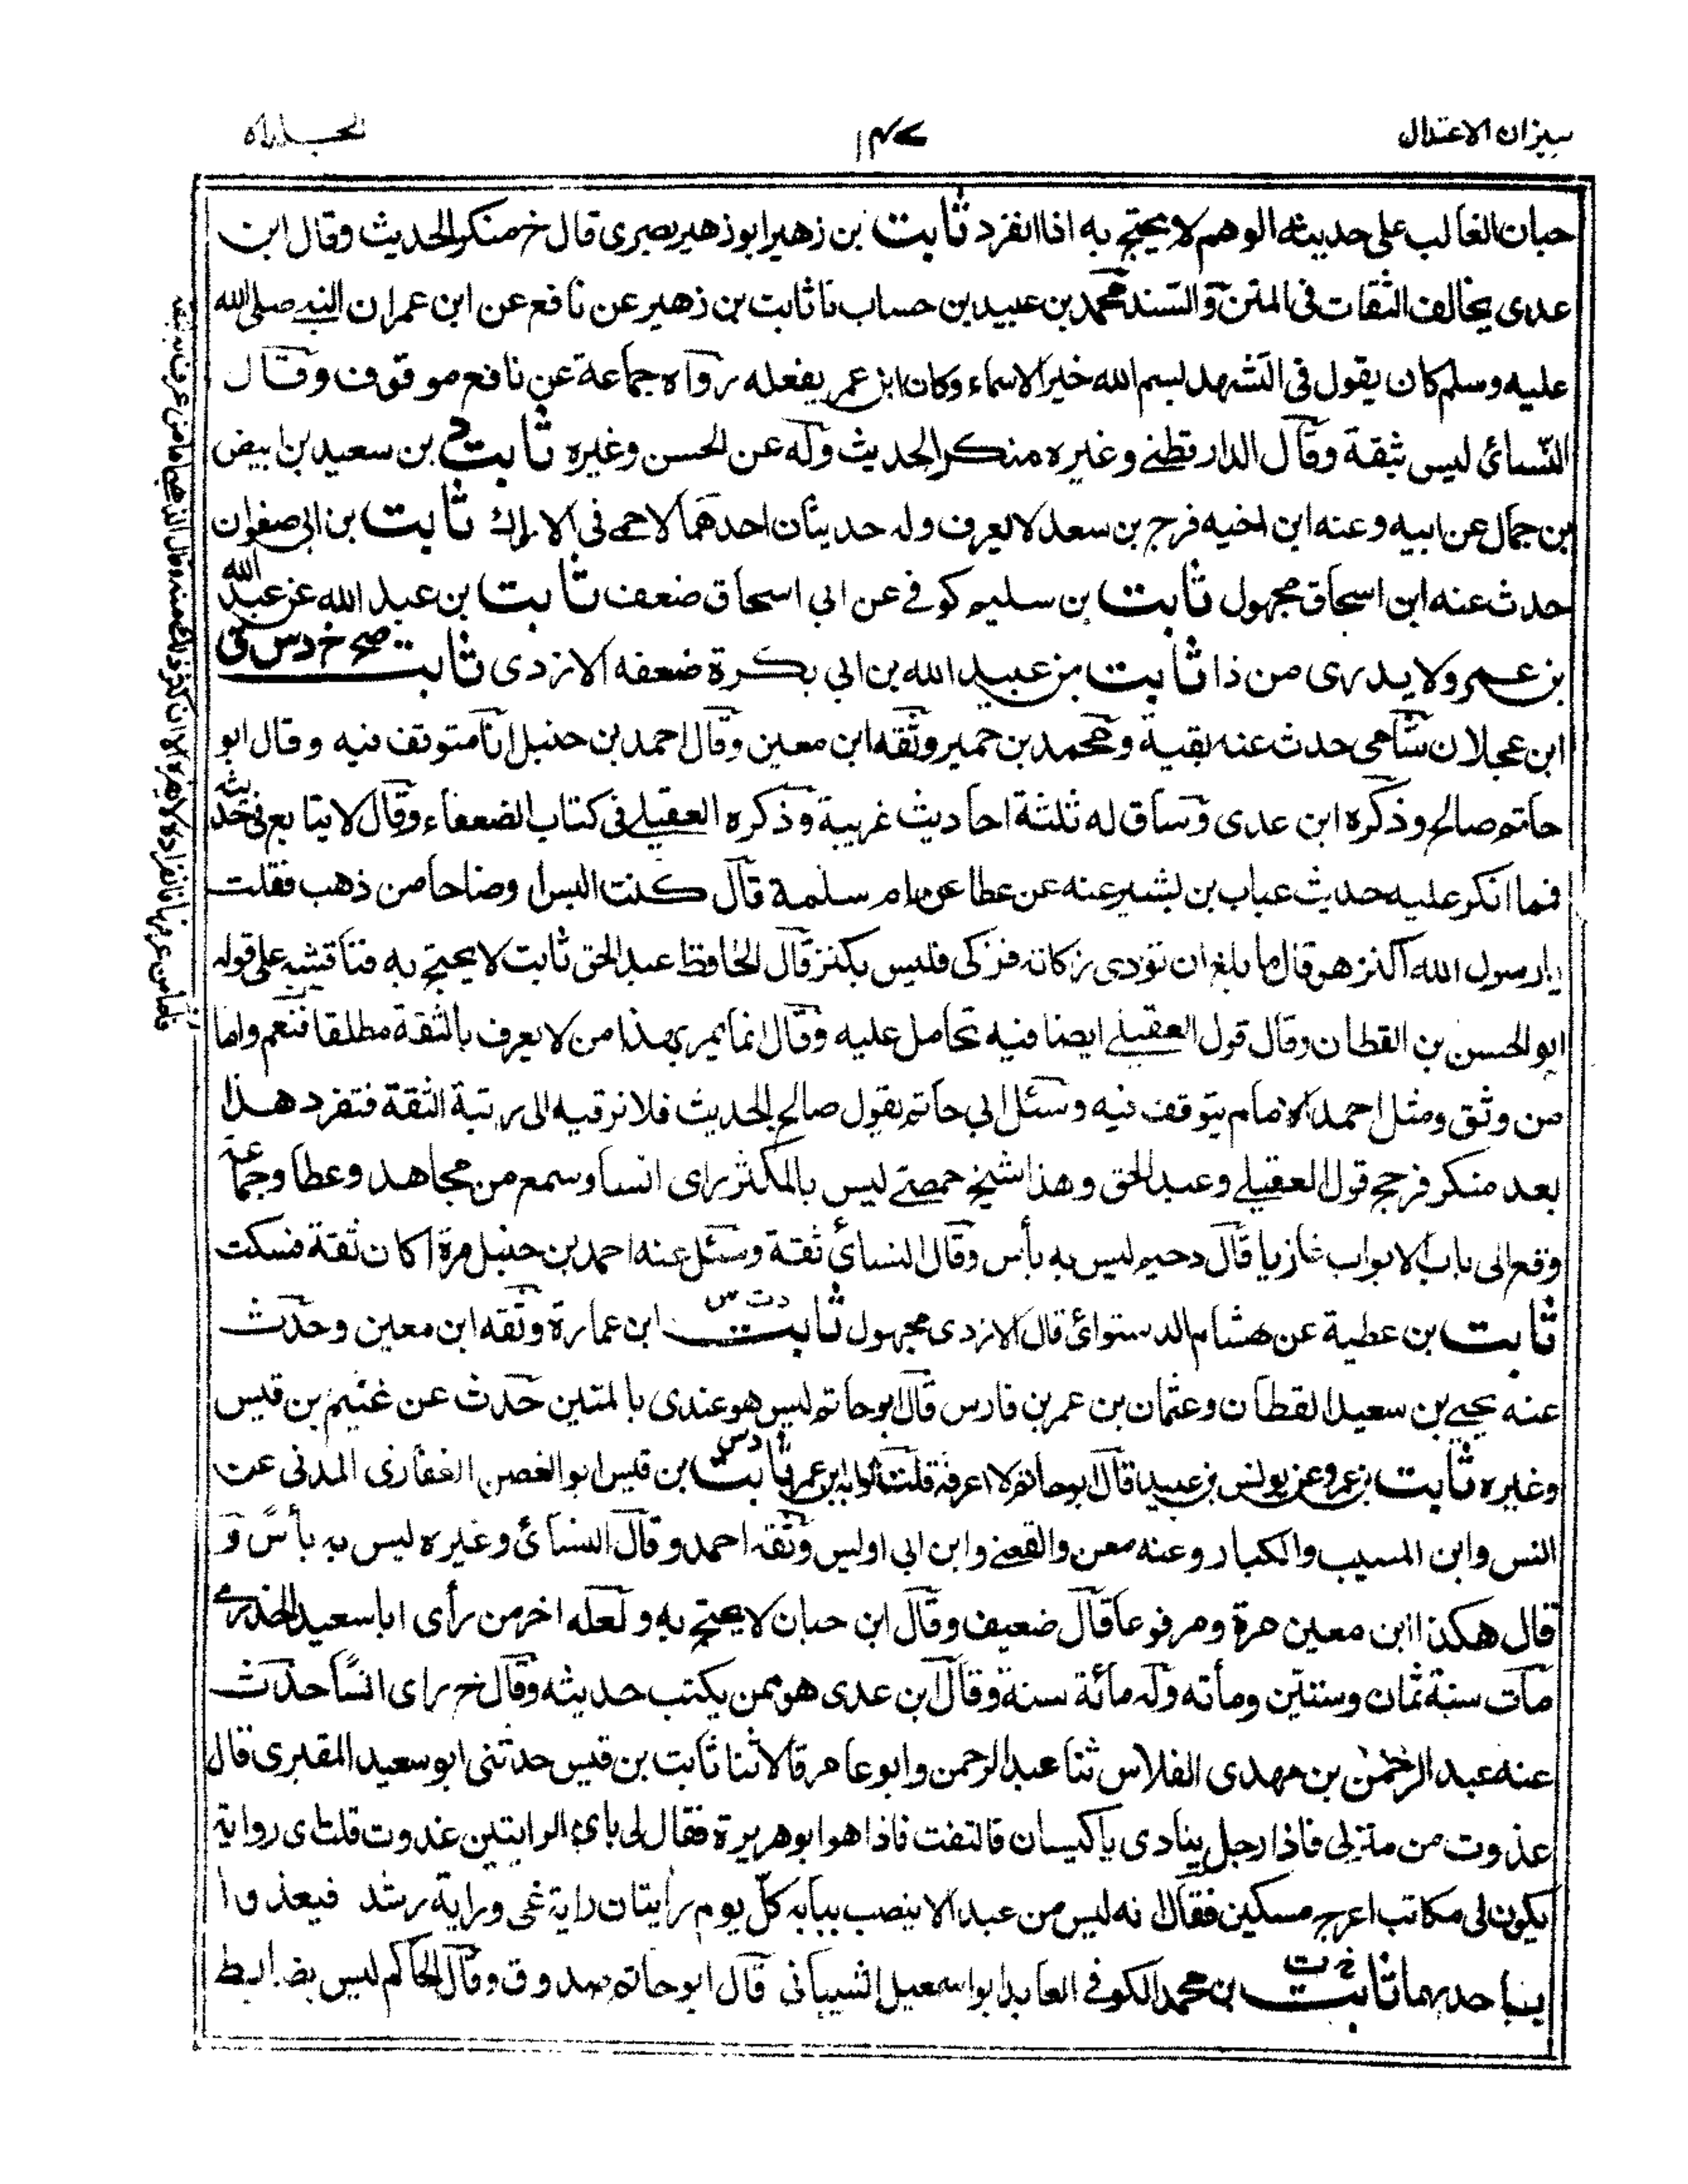 ميزان الاعتدال
١٤٧
حبان الغالب على حديثه الوهم لا يحتج به اذا انفرد ثابت بن زهير ابو زهير بصرى قال خ منكر الحديث وقال ابن
عدى يخالف الثقات فى المتن والسند محمد بن عبيد بن حساب نا ثابت بن زهير عن نافع عن ابن عمر ان النبي صلى الله
عليه وسلم كان يقول فى التشهد بسم الله خير الاسماء وكان ابن عمر يفعله رواه جماعة عن نافع موقوف وقال
النسائى ليس بثقة وقال الدارقطنے وغيره منكر الحديث وله عن الحسن وغيره ثابت بن سعيد بن ابيض
بن حمال عن ابيه وعنه ابن اخيه فرج بن سعد لا يعرف وله حديثان احدهما لاحمے فى الاراك ثابت بن ابى صفوان
حدث عنه ابن اسحاق مجهول ثابت بن سليم كوفے عن ابى اسحاق ضعف ثابت بن عبد الله عن عبد الله
بن عمر ولا يدرى من ذا ثابت بن عبيد الله بن ابى بكرة ضعفه الازدى ثابت صح خ د س ق
ابن عجلان شامى حدث عنه بقية ومحمد بن حمير وثقه ابن معين وقال احمد بن حنبل انا متوقف فيه وقال ابو
حاتم صالح وذكره ابن عدى وساق له ثلثة احاديث غريبة وذكره العقيلے فى كتاب الضعفاء وقال لا يتابع فى حديثه
فما انكر عليه حديث عتاب بن بشير عنه عن عطا عن ام سلمة قال كنت البس اوضاحا من ذهب فقلت
يا رسول الله أكنز هو قال ما بلغ ان تؤدى زكاته فزكى فليس بكنز قال الحافظ عبد الحق ثابت لا يحتج به فناقشه على قوله
ابو الحسن بن القطان وقال قول العقيلے ايضا فيه تحامل عليه وقال انما يمر بهذا من لا يعرف بالثقة مطلقا فنعم واما
من وثق ومثل احمد الامام يتوقف فيه وسئل ابى حاتم يقول صالح الحديث فلا نرقيه الى رتبة الثقة فتفرد هذا
بعد منكر فرجح قول العقيلے وعبد الحق وهذا شيخ حمصے ليس بالمكثر راى انسا وسمع من مجاهد وعطا وجماعة
وقع الى باب الابواب غازيا قال دحيم ليس به بأس وقال النسائى ثقة وسئل عنه احمد بن حنبل مرة اكان ثقة فسكت
ثابت بن عطية عن هشام الدستوائى قال الازدى مجهول ثابت د ت س ابن عمارة وثقه ابن معين وحدث
عنه يحيى بن سعيد القطان وعثمان بن عمر بن فارس قال ابو حاتم ليس هو عندى بالمتين حدث عن غنيم بن قيس
وغيره ثابت بن عمرو عن يونس بن عبيد قال ابو حاتم لا اعرفه قلت ثابت د س بن قيس ابو الغصن الغفارى المدنى عن
انس وابن المسيب والكبار وعنه معن والقعنے وابن ابى اوليس وثقه احمد وقال النسائى وغيره ليس به بأس و
قال هكذا ابن معين مرة ومرفوعا قال ضعيف وقال ابن حبان لا يحتج به ولعله اخر من رأى ابا سعيد الخدرى
مات سنة ثمان وستين ومأته وله مائة سنة وقال ابن عدى هو ممن يكتب حديثه وقال خ راى انسا حدث
عنه عبد الرحمٰن بن مهدى الفلاس ثنا عبد الرحمن وابو عامر قالا ثنا ثابت بن قيس حدثنى ابو سعيد المقبرى قال
غدوت من منزلى فاذا رجل ينادى يا كيسان فالتفت فاذا هو ابو هريرة فقال لى باى الرايتين غدوت قلت اى رواية
يكون لى مكاتب اعرج مسكين فقال انه ليس من عبد الا ينصب ببابه كل يوم رأيتان راية غى وراية رشد فيغدوا
بباحديهما ثابت خ ت بن محمد الكوفے العابد ابو اسمعيل الشيبانى قال ابو حاتم صدوق وقال الحاكم ليس بضابط